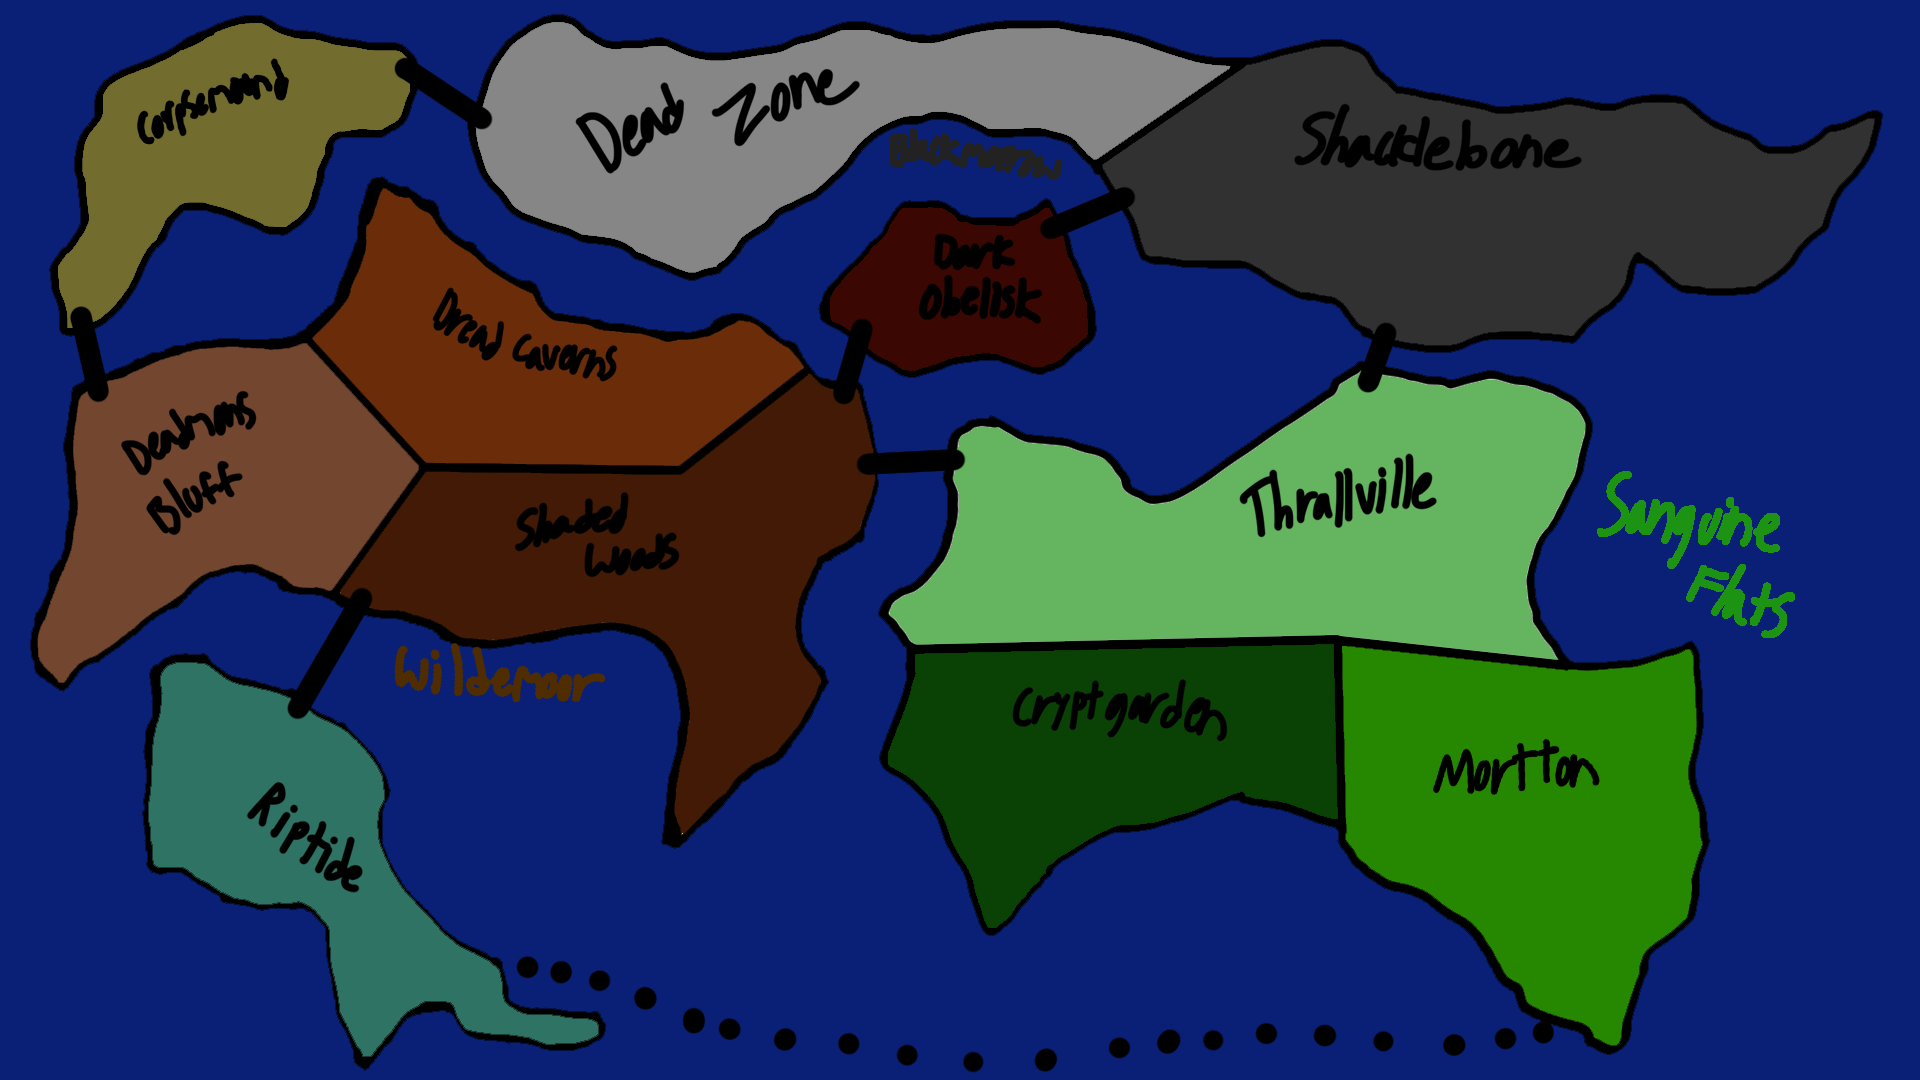 Corpsemound
Dead Zone
Blackmarrow
Shacklebone
Dark
Obelisk
Dread Caverns
Deadmans
Bluff
Shaded
Woods
Thrallville
Sanguine
Flats
Wildemoor
Cryptgarden
Mortton
Riptide